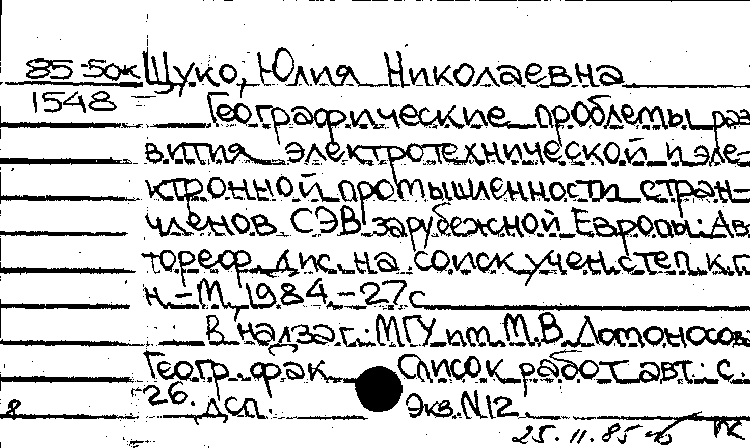 85-50к Щуко, Юлия Николаевна
1548
Географические проблемы раз
вития электротехнической и эле-
ктронной промышленности стран-
членов СЭВ зарубежной Европы: Ав
тореф. дис. на соиск. учен. степ. к.г.
н. - М., 1984. - 27 с
В надзаг.: МГУ им. М.В. Ломоносова
Геогр. фак. Список работ авт.: с.
26.
ДСП. Экз. N12.
25.11.85